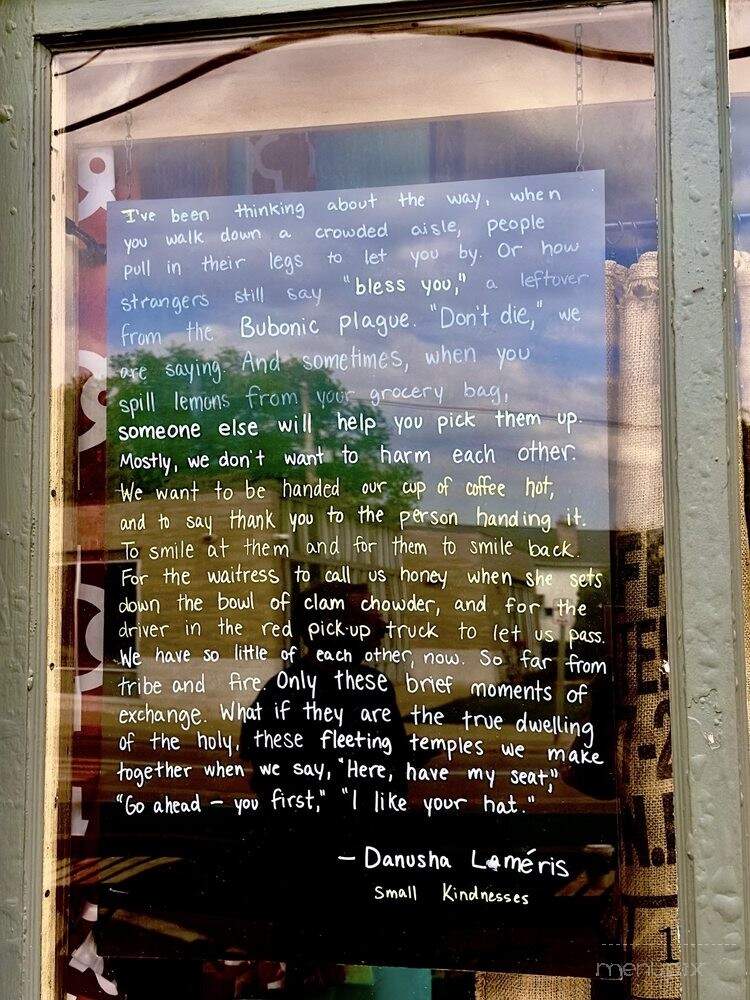 I've been thinking about the way, when
you walk down a crowded aisle, people
pull in their legs to let you by. Or how
strangers still say "bless you," a leftover
from the Bubonic plague. "Don't die," we
are saying. And sometimes, when you
spill lemons from your grocery bag,
someone else will help you pick them up.
Mostly, we don't want to harm each other.
We want to be handed our cup of coffee hot,
and to say thank you to the person handing it.
To smile at them and for them to smile back.
For the waitress to call us honey when she sets
down the bowl of clam chowder, and for the
driver in the red pick-up truck to let us pass.
We have so little of each other, now. So far from
tribe and fire. Only these brief moments of
exchange. What if they are the true dwelling
of the holy, these fleeting temples we make
together when we say, "Here, have my seat,"
"Go ahead – you first," "I like your hat."
– Danusha Laméris
Small Kindnesses
menupix